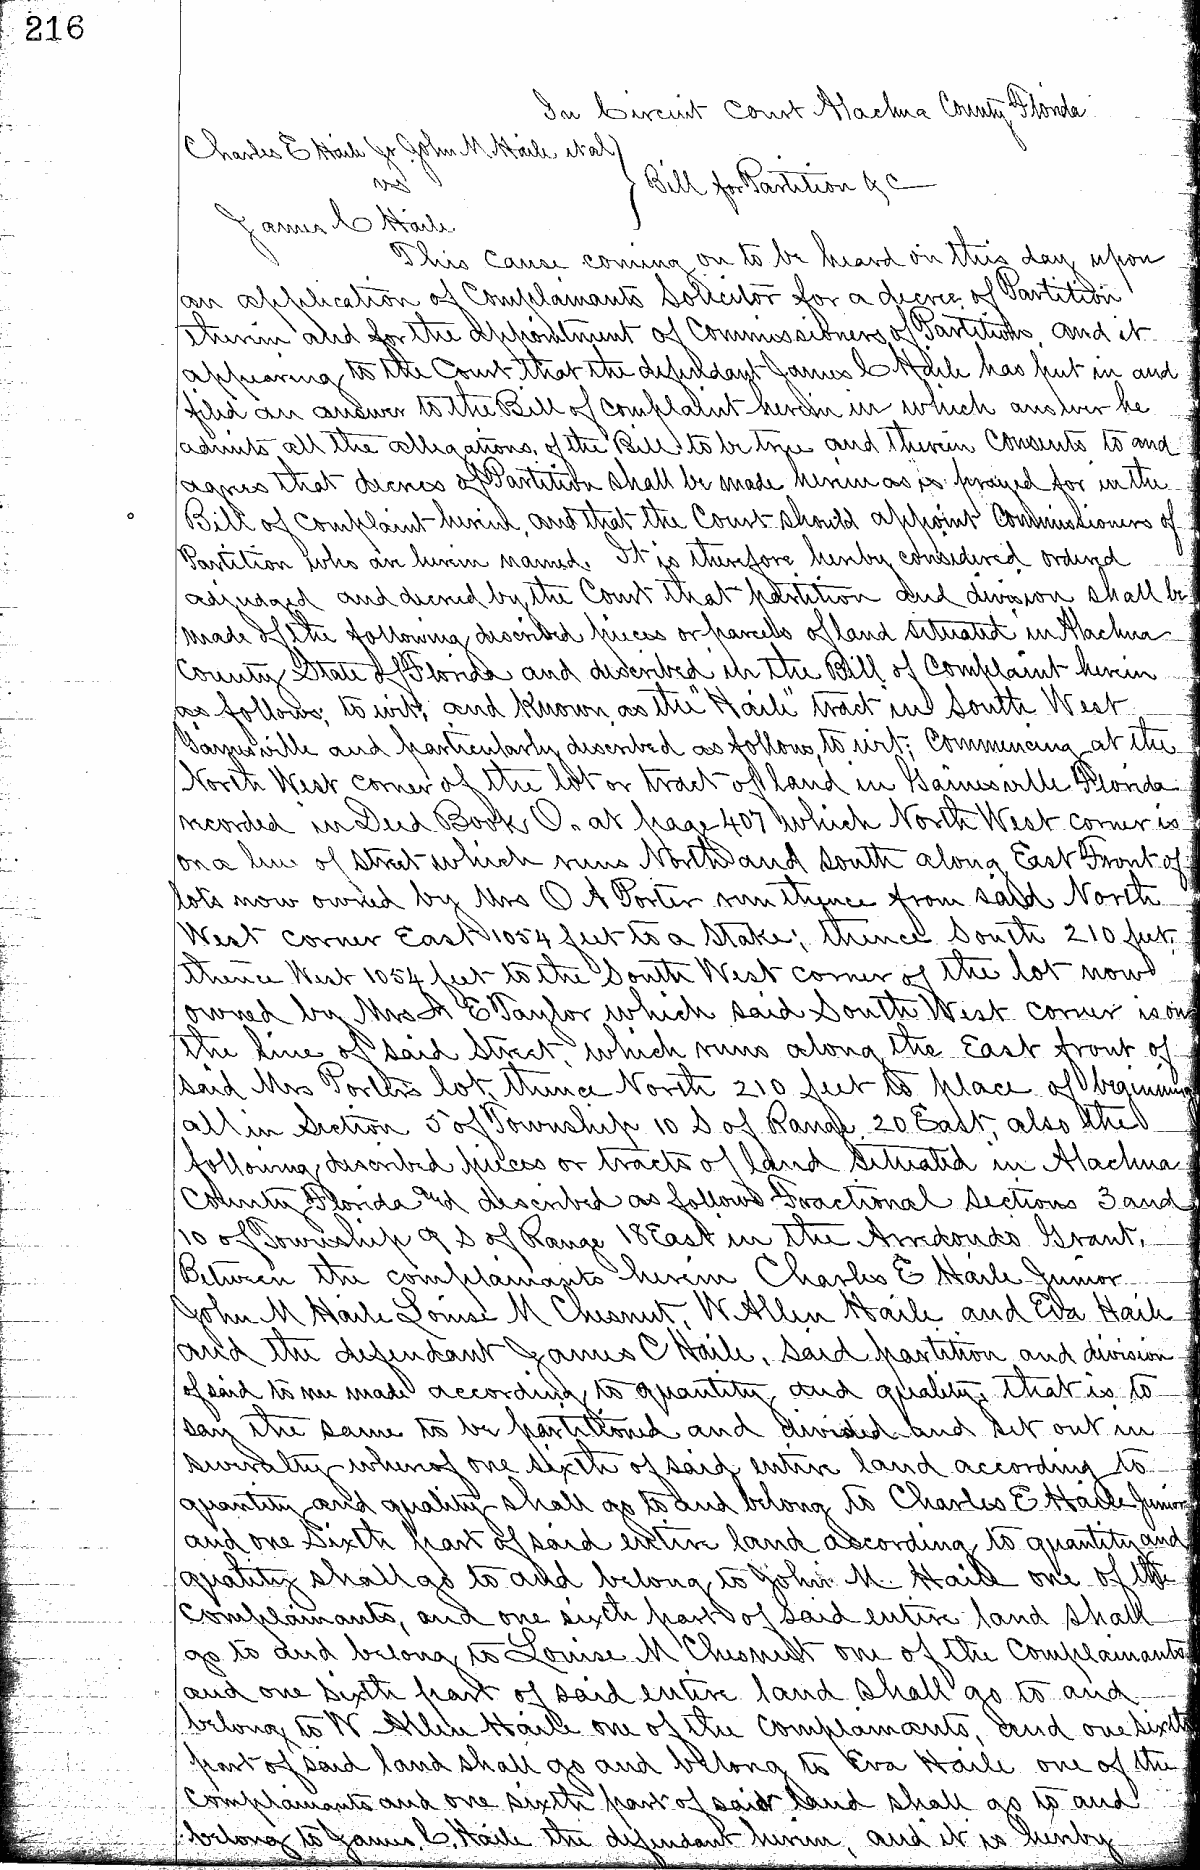 216
In Circuit Court Alachua County Florida
Charles E Haile Jr John M Haile et al
vs
Bill for Partition &c
James C Haile
This cause coming on to be heard on this day upon
an application of Complainants Solicitor for a decree of Partition
therein and for the appointment of Commissioners of Partition, and it
appearing to the Court that the defendant James C Haile has put in and
filed an answer to the Bill of complaint herein in which answer he
admits all the allegations of the Bill to be true and therein Consents to and
agrees that decree of Partition shall be made herein as is prayed for in the
Bill of complaint herein, and that the Court should appoint Commissioners of
Partition who are herein named. It is therefore hereby considered ordered
adjudged and decreed by the Court that partition and division shall be
made of the following described pieces or parcels of land situated in Alachua
County State of Florida and described in the Bill of Complaint herein
as follows, to wit; and Known as the "Haile" tract in South West
Gainesville and particularly described as follows, to wit; Commencing at the
North West corner of the lot or tract of land in Gainesville Florida
recorded in Deed Book O. at page 407 which North West corner is
on a line of street which runs North and South along East Front of
lots now owned by Mrs O A Porter run thence from said North
West corner East 1054 feet to a Stake; thence South 210 feet,
thence West 1054 feet to the South West corner of the lot now
owned by Mrs A E Taylor which said South West corner is on
the line of said Street, which runs along the East front of
said Mrs Porters lot, thence North 210 feet to place of beginning
all in Section 5 of Township 10 S of Range 20 East, also the
following described pieces or tracts of land situated in Alachua
County Florida and described as follows Fractional Sections 3 and
10 of Township 9 S of Range 18 East in the Arredondo Grant.
Between the complainants herein Charles E Haile Junior
John M Haile Louise M Chesnut, W Allen Haile and Eva Haile
and the defendant James C Haile, said partition and division
of said to me made according to quantity and quality, that is to
say the same to be partitioned and divided and set out in
severalty whereof one sixth of said entire land according to
quantity and quality shall go to and belong to Charles E Haile Junior
and one Sixth part of said entire land according to quantity and
quality shall go to and belong to John M. Haile one of the
Complainants, and one sixth part of said entire land shall
go to and belong to Louise M Chesnut one of the Complainants
and one sixth part of said entire land shall go to and
belong to W Allen Haile one of the Complainants, and one sixth
part of said land shall go and belong to Eva Haile one of the
Complainants and one sixth part of said land shall go to and
belong to James C. Haile the defendant herein, and it is hereby